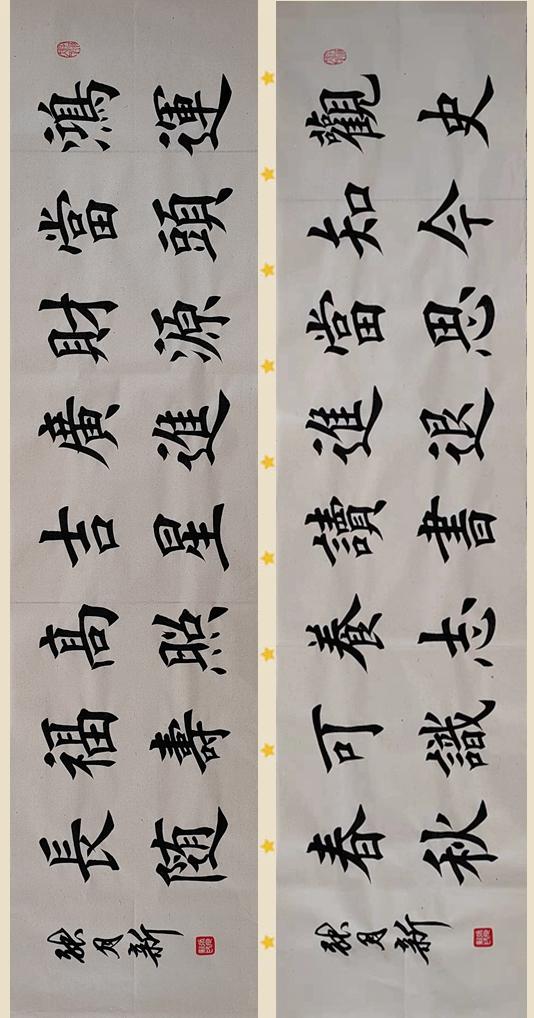 鴻運
當頭
財源
廣進
吉星
高照
福壽
長随
月新
觀史
知今
當思
進退
讀書
養志
可識
春秋
月新